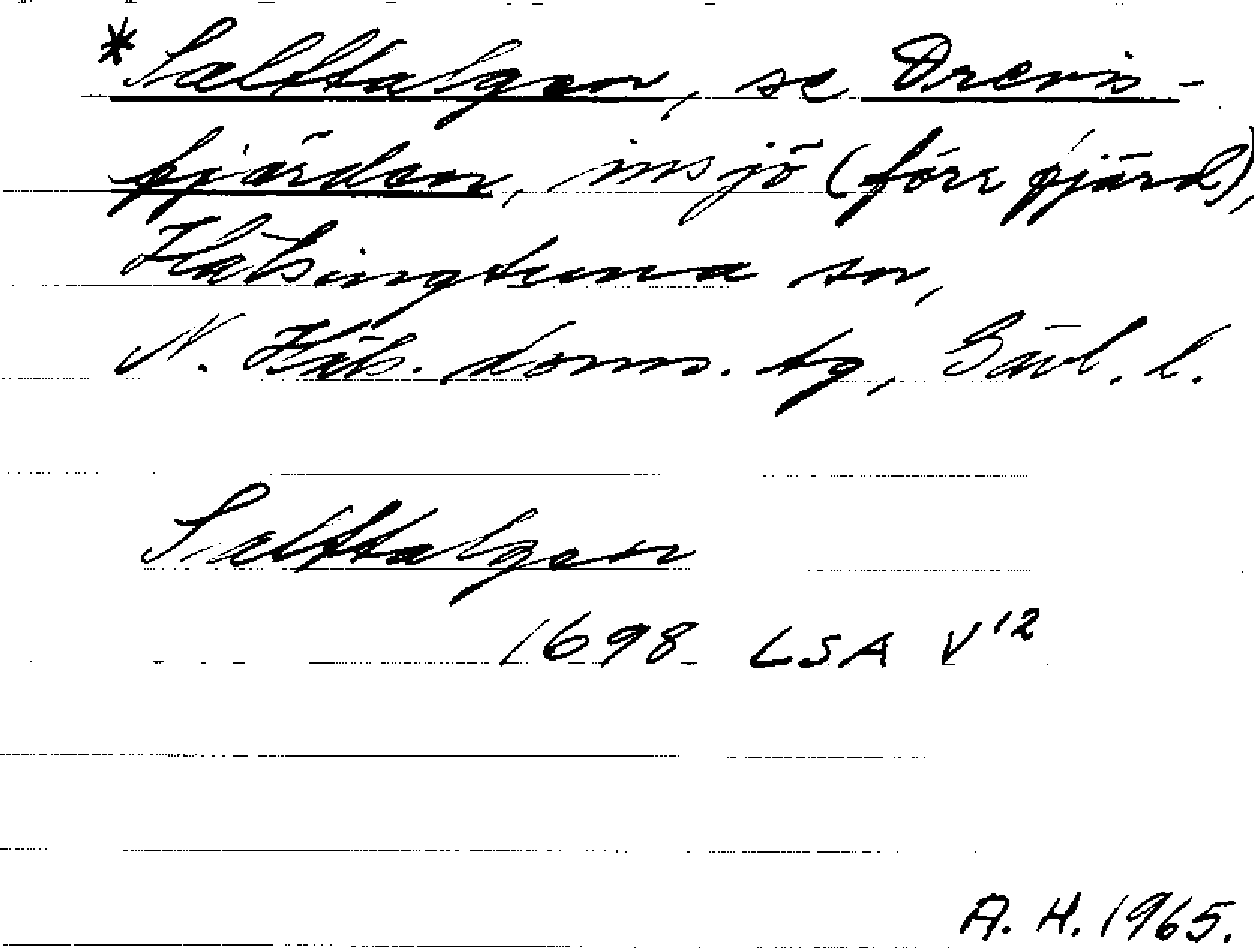 *Salttalgen, se Drevis-
fjärden, insjö (förr fjärd),
Hälsingtuna sn,
N. Häls. doms. tg, Gävl. l.
Salttalgen
1698 LSA V12
A. H. 1965.